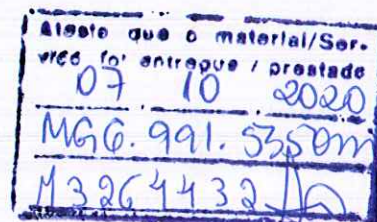 Ateste que o material/Ser-
viço foi entregue / prestado
07 10 2020
MG6.991.535
M3264432